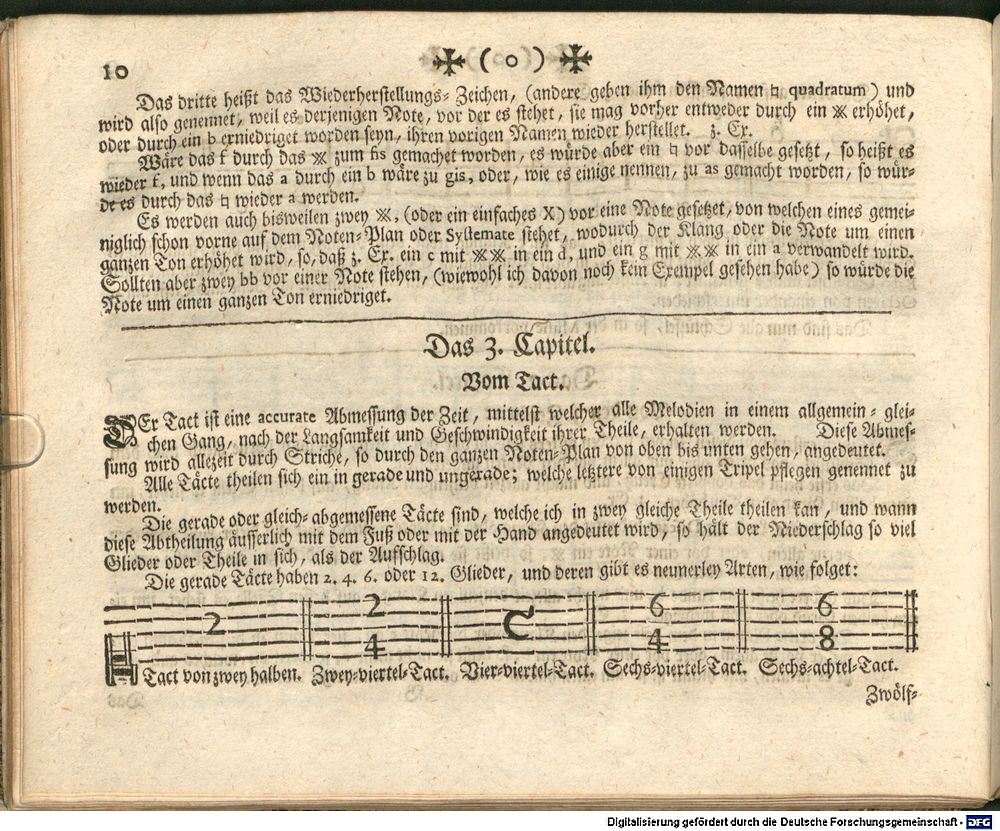 10
( o )
Das dritte heißt das Wiederherstellungs-Zeichen, (andere geben ihm den Namen ♮ quadratum) und
wird also genennet, weil es derjenigen Note, vor der es stehet, sie mag vorher entweder durch ein ※ erhöhet,
oder durch ein b erniedriget worden seyn, ihren vorigen Namen wieder herstellet. z. Ex.
Wäre das f durch das ※ zum fis gemachet worden, es würde aber ein ♮ vor dasselbe gesetzt, so heißt es
wieder f, und wenn das a durch ein b wäre zu gis, oder, wie es einige nennen, zu as gemacht worden, so wür-
de es durch das ♮ wieder a werden.
Es werden auch bisweilen zwey ※, (oder ein einfaches X) vor eine Note gesetzet, von welchen eines gemei-
niglich schon vorne auf dem Noten-Plan oder Systemate stehet, wodurch der Klang oder die Note um einen
ganzen Ton erhöhet wird, so, daß z. Ex. ein c mit ※※ in ein d, und ein g mit ※※ in ein a verwandelt wird.
Sollten aber zwey bb vor einer Note stehen, (wiewohl ich davon noch kein Exempel gesehen habe) so würde die
Note um einen ganzen Ton erniedriget.
Das 3. Capitel.
Vom Tact.
DEr Tact ist eine accurate Abmessung der Zeit, mittelst welcher alle Melodien in einem allgemein-glei-
chen Gang, nach der Langsamkeit und Geschwindigkeit ihrer Theile, erhalten werden. Diese Abmes-
sung wird allezeit durch Striche, so durch den ganzen Noten-Plan von oben bis unten gehen, angedeutet.
Alle Täcte theilen sich ein in gerade und ungerade; welche letztere von einigen Tripel pflegen genennet zu
werden.
Die gerade oder gleich-abgemessene Täcte sind, welche ich in zwey gleiche Theile theilen kan, und wann
diese Abtheilung äusserlich mit dem Fuß oder mit der Hand angedeutet wird, so hält der Niederschlag so viel
Glieder oder Theile in sich, als der Aufschlag.
Die gerade Täcte haben 2. 4. 6. oder 12. Glieder, und deren gibt es neunerley Arten, wie folget:
2 2 4 C 6 4 6 8
Tact von zwey halben. Zwey-viertel-Tact. Vier-viertel-Tact. Sechs-viertel-Tact. Sechs-achtel-Tact.
Zwölf-
Digitalisierung gefördert durch die Deutsche Forschungsgemeinschaft - DFG